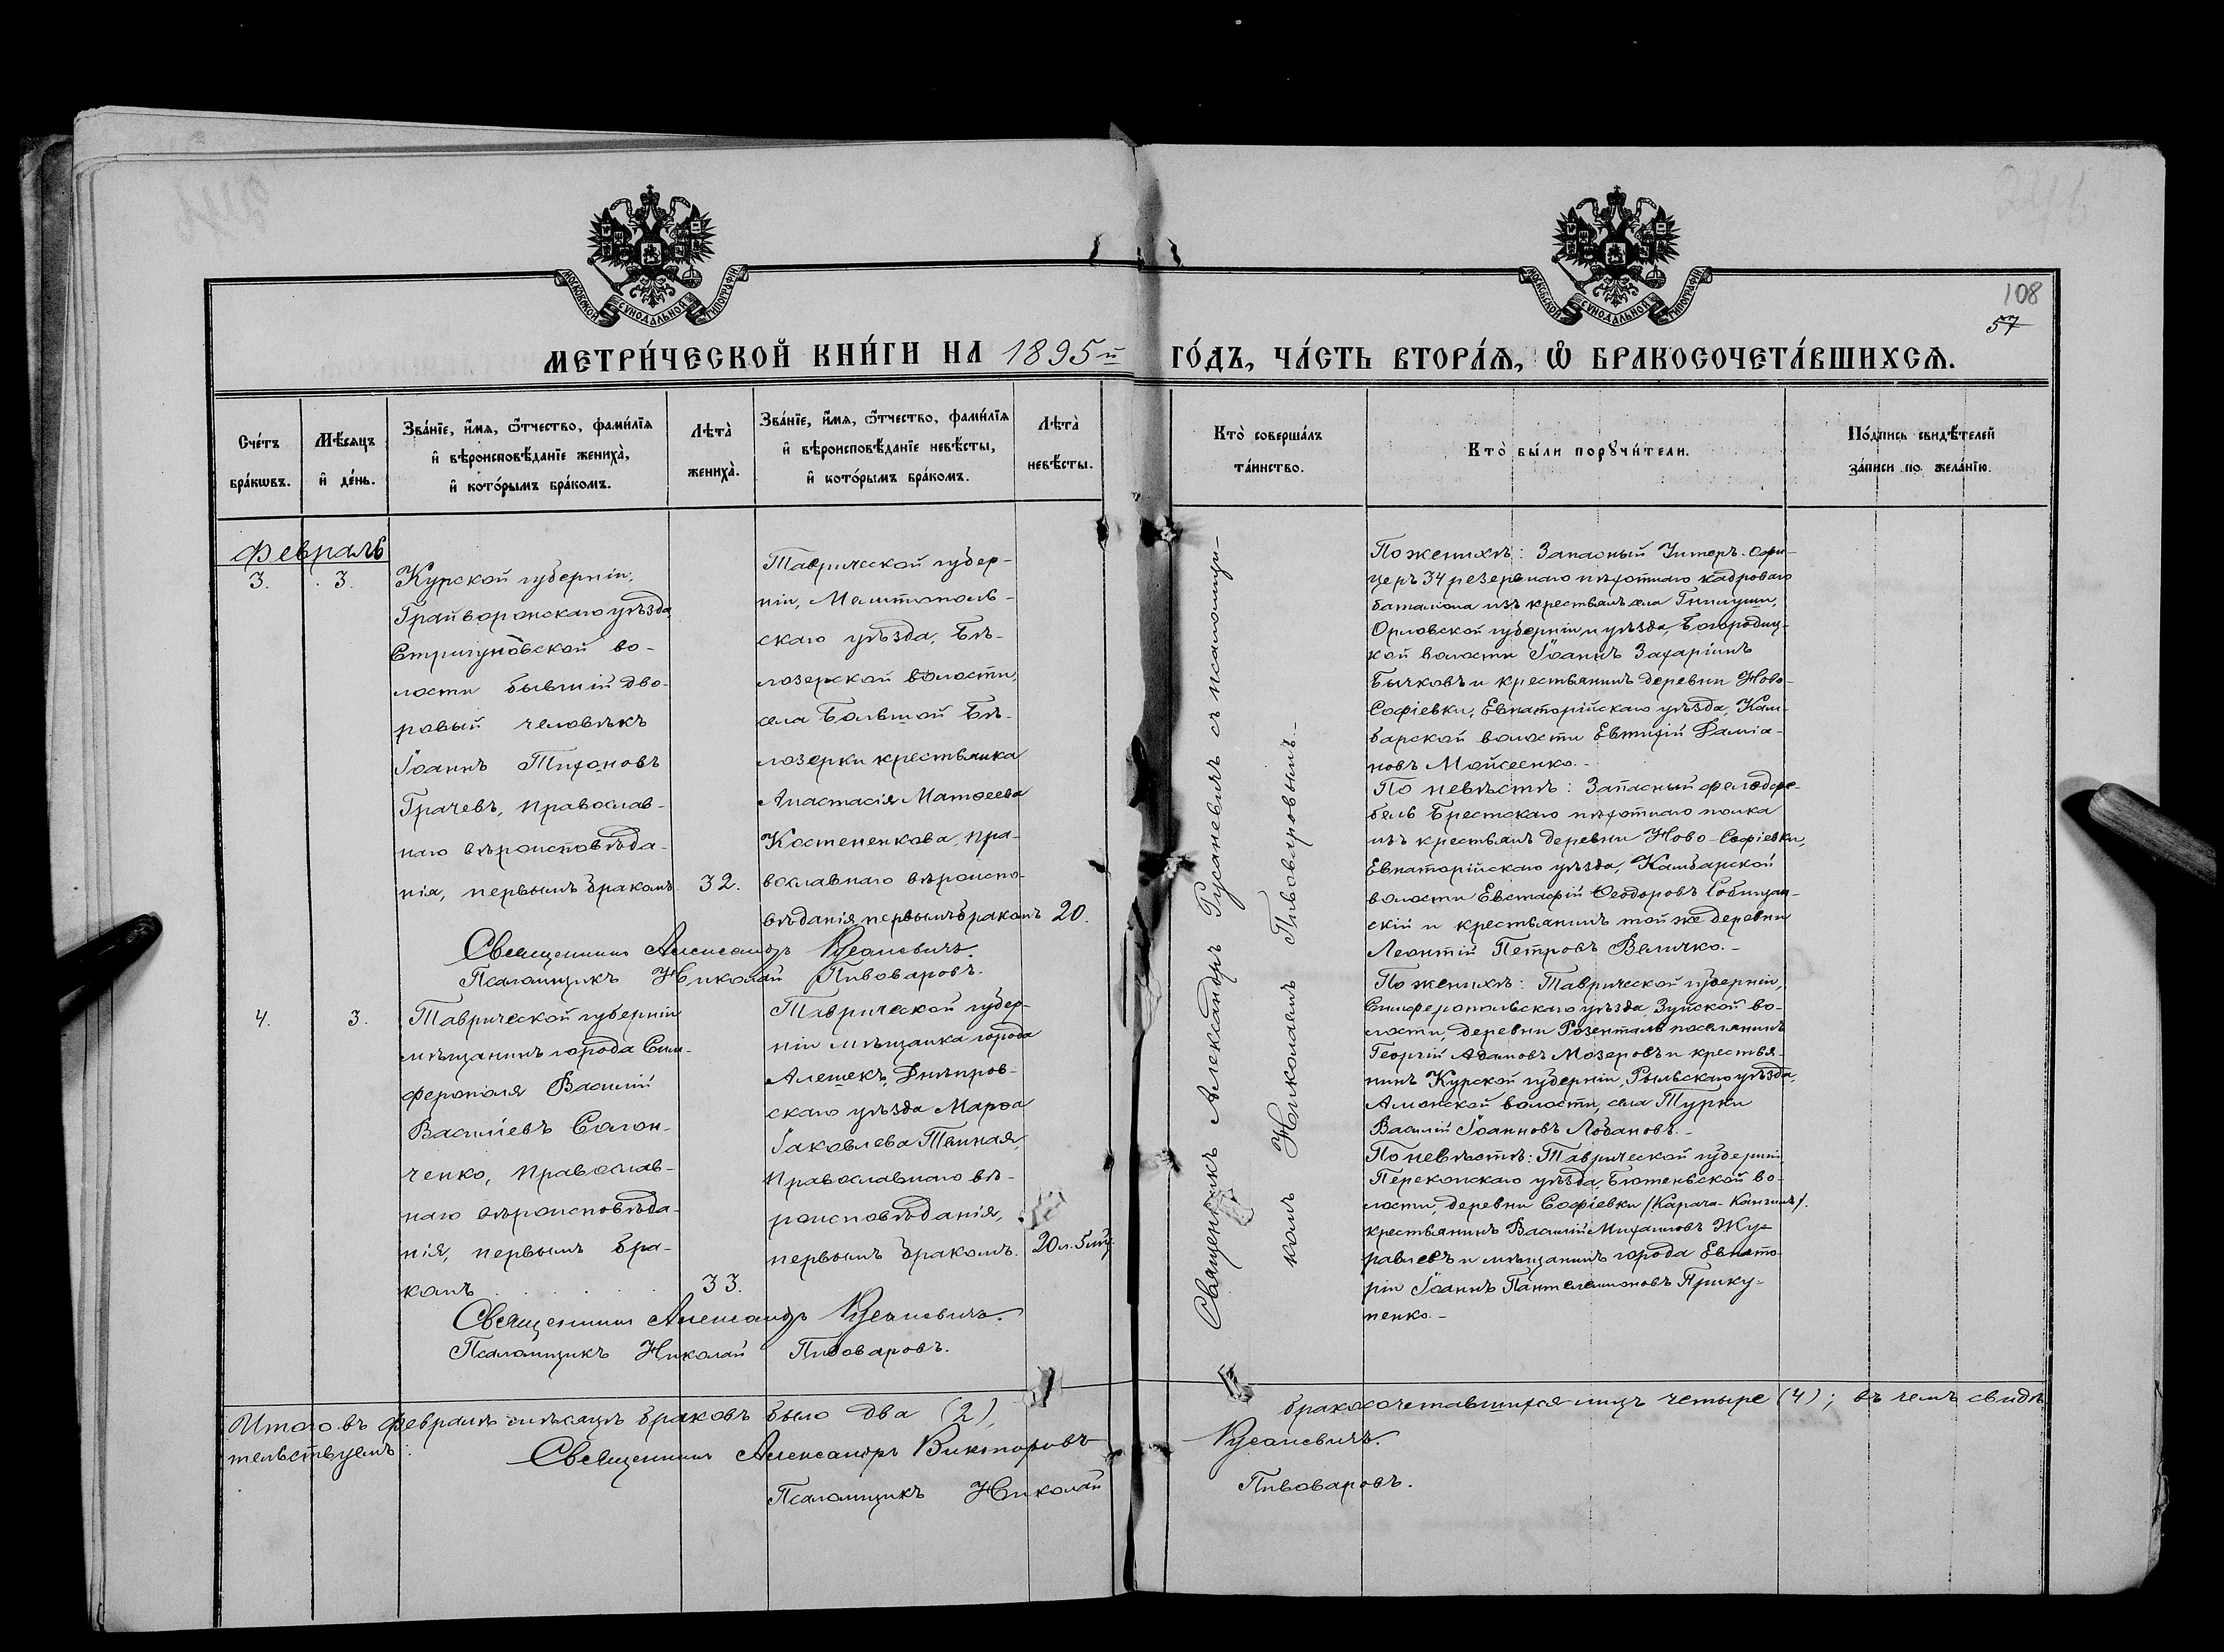 108
57
МОСКОВСКОЙ СУНОДАЛЬНОЙ ТИПОГРАФІИ
МОСКОВСКОЙ СУНОДАЛЬНОЙ ТИПОГРАФІИ
МЕТРИ́ЧЕСКОЙ КНИ́ГИ НА 1895й ГО́ДЪ, ЧА́СТЬ ВТОРА́Я, Ѡ БРАКОСОЧЕТА́ВШИХСЯ.
Сче́тъ
бра́кѡвъ.
Мѣ́сяцъ
и҆ де́нь.
Зва́нїе, и҆́мя, ѻ҆́тчество, фами́лїя
и҆ вѣроисповѣ́данїе жениха̀,
и҆ кото́рымъ бра́комъ.
Лѣта̀
жениха̀.
Зва́нїе, и҆́мя, ѻ҆́тчество, фами́лїя
и҆ вѣроисповѣ́данїе невѣ́сты,
и҆ кото́рымъ бра́комъ.
Лѣта̀
невѣ́сты.
Кто̀ соверша́лъ
та́инство.
Кто̀ бы́ли порꙋчи́тели.
По́дпись свидѣ́телей
за́писи по жела́нїю.
Февраль
3.
3.
Курской губерніи,
Грайворонскаго уѣзда,
Стригуновской во-
лости бывшій дво-
ровый человѣкъ
Іоаннъ Тихоновъ
Грачевъ, православ-
наго вѣроисповѣда-
нія, первымъ бракомъ.
32.
Таврической губер-
ніи, Мелитополь-
скаго уѣзда, Бѣ-
лозерской волости,
села Большой Бѣ-
лозерки крестьянка
Анастасія Матѳеева
Костененкова, пра-
вославнаго вѣроиспо-
вѣданія, первымъ бракомъ
20.
Священникъ Александръ Русаневичъ.
Псаломщикъ Николай Пивоваровъ.
Священникъ Александръ Русаневичъ съ псаломщи-
комъ Николаемъ Пивоваровымъ.-
По женихѣ: Запасный Унтеръ-Офи-
церъ 34 резервнаго пѣхотнаго кадроваго
баталіона изъ крестьянъ села
Орловской губерніи и уѣзда, Богородиц-
кой волости Іоаннъ Захаріинъ
Бычковъ и крестьянинъ деревни Ново-
Софіевки, Евпаторійскаго уѣзда, Кам-
барской волости Евтихій Даміа-
новъ Мойсеенко.-
По невѣстѣ: Запасный фельдфе-
бель Брестскаго пѣхотнаго полка
изъ крестьянъ деревни Ново-Софіевки,
Евпаторійскаго уѣзда, Камбарской
волости Евстафій Ѳеодоровъ
и крестьянинъ той же деревни
Леонтій Петровъ Величко.-
4.
3.
Таврической губерніи
мѣщанинъ города Сим-
ферополя Василій
Василіевъ Солон-
ченко, православ-
наго вѣроисповѣда-
нія, первымъ бра-
комъ
33.
Таврической губер-
ніи мѣщанка города
Алешекъ, Днѣпров-
скаго уѣзда Марѳа
Іаковлева
православнаго вѣ-
роисповѣданія,
первымъ бракомъ.
20 л. 5 мѣ.
Священникъ Александръ Русаневичъ.
Псаломщикъ Николай Пивоваровъ.
По женихѣ: Таврической губерніи,
Симферопольскаго уѣзда, Зуйской во-
лости, деревни Розенталь поселянинъ
Георгій Адамовъ Мозеровъ и крестья-
нинъ Курской губерніи, Рыльскаго уѣзда,
Амонской волости, села Турки
Василій Іоанновъ Лобановъ.-
По невѣстѣ: Таврической губерніи,
Перекопскаго уѣзда, Бютеньской во-
лости, деревни Софіевки /Карача-Кангилъ/.
крестьянинъ Василій Михаиловъ Жу-
равлевъ и мѣщанинъ города Евпато-
ріи Іоаннъ Пантелеимоновъ Прику-
пенко.-
Итого въ Февралѣ мѣсяцѣ браковъ было два (2), бракосочетавшихся лицъ четыре (4); въ чемъ свидѣ-
тельствуемъ:
Священникъ Александръ Викторовъ Русаневичъ.
Псаломщикъ Николай Пивоваровъ.